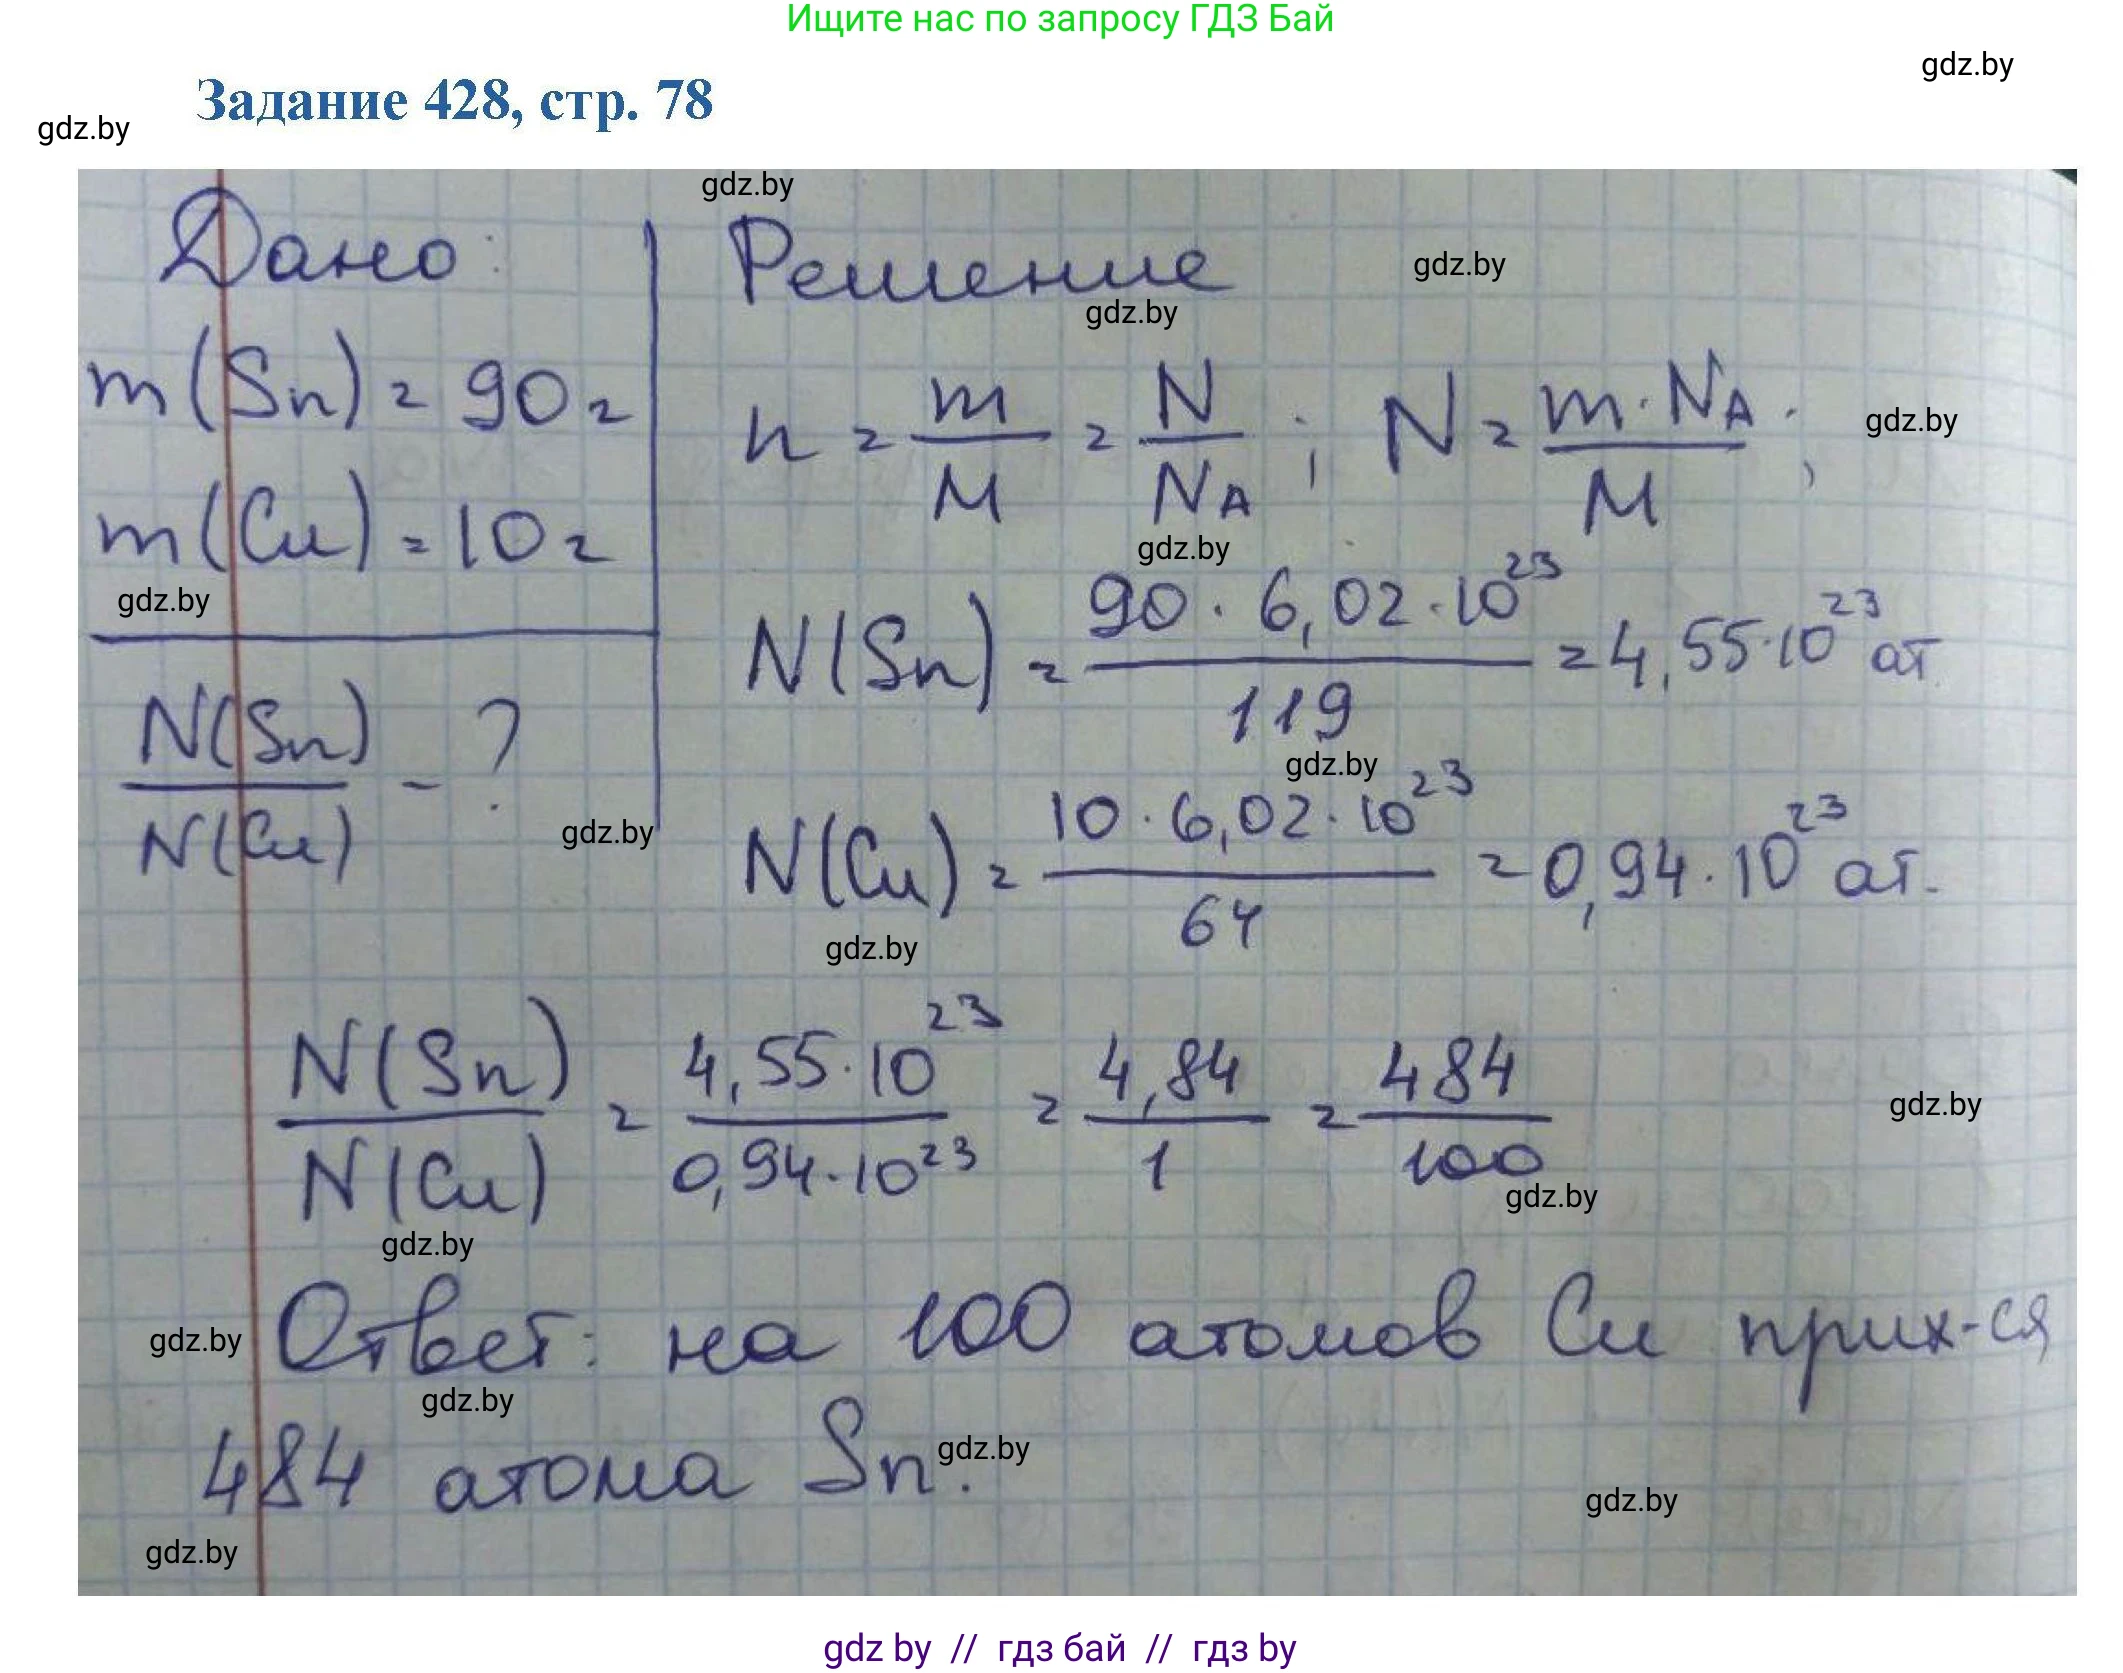 Ищите нас по запросу ГДЗ Бай
gdz.by
Задание 428, стр. 78
gdz.by
gdz.by
Дано: Решение
gdz.by
gdz.by
m(Sn) = 90 г
n = m/M = N/NA ; N = m·NA/M ;
gdz.by
m(Cu) = 10 г
gdz.by
gdz.by
N(Sn) = 90 · 6,02 · 10^23 / 119 = 4,55·10^23 ат.
N(Sn)/N(Cu) - ?
gdz.by
gdz.by
N(Cu) = 10 · 6,02 · 10^23 / 64 = 0,94 · 10^23 ат.
gdz.by
N(Sn)/N(Cu) = 4,55·10^23 / 0,94·10^23 = 4,84/1 = 484/100
gdz.by
gdz.by
gdz.by
Ответ: на 100 атомов Cu прих-ся
gdz.by
gdz.by
484 атома Sn.
gdz.by
gdz.by
gdz.by
gdz by // гдз бай // гдз by